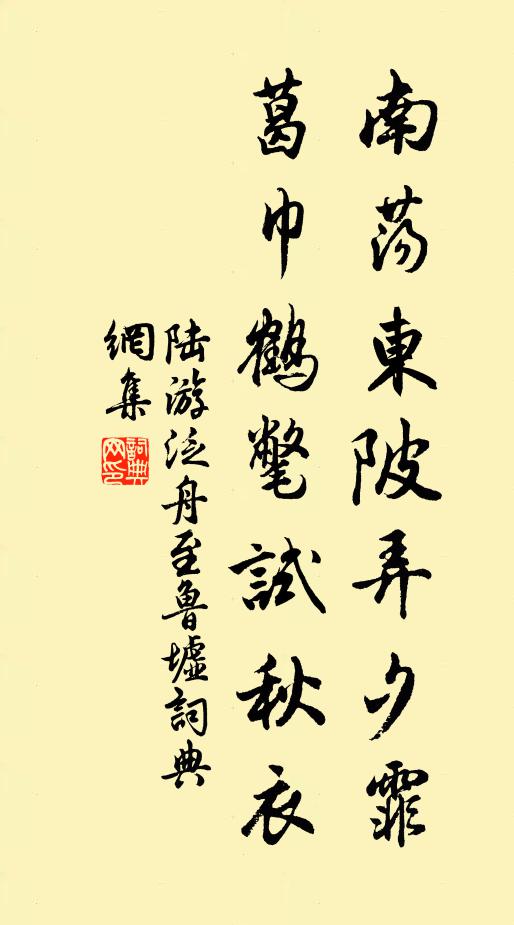 南蕩東陂弄夕霏
葛巾鶴氅試秋衣
陸游泛舟至魯墟詞典
網集
詞典
网印